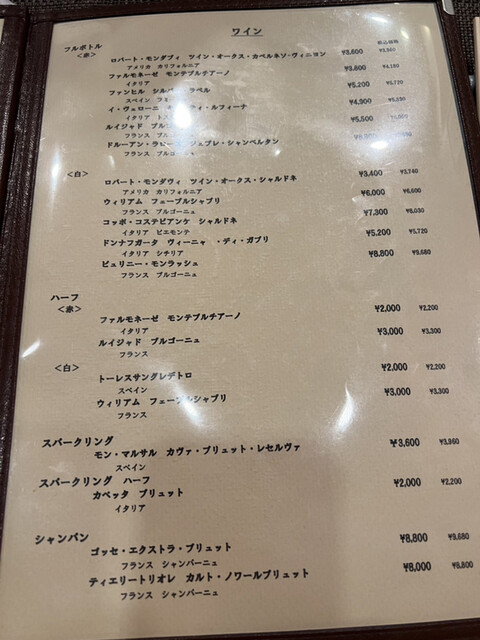 ワイン
フルボトル 税込価格
<赤>
ロバート・モンダヴィ ツイン・オークス・カベルネソ・ヴィニヨン ¥3,600
アメリカ カリフォルニア
ファルモネーゼ モンテプルチアーノ ¥3,800 ¥4,180
イタリア
ファンヒル ¥5,200 ¥5,720
スペイン
イ・ヴェローニ ・ルフィーナ ¥4,900 ¥5,390
イタリア
ルイジャド ¥5,500
フランス
ドルーアン・ ジュブレ・シャンベルタン
フランス
<白>
ロバート・モンダヴィ ツイン・オークス・シャルドネ ¥3,400 ¥3,740
アメリカ カリフォルニア
ウィリアム フェーブルシャブリ ¥6,000 ¥6,600
フランス ブルゴーニュ
コッポ・コステビアンケ シャルドネ ¥7,300 ¥8,030
イタリア ピエモンテ
ドンナフガータ ヴィーニャ ・ディ・ガブリ ¥5,200 ¥5,720
イタリア シチリア
ピュリニー・モンラッシュ ¥8,800 ¥9,680
フランス ブルゴーニュ
ハーフ
<赤>
ファルモネーゼ モンテプルチアーノ ¥2,000 ¥2,200
イタリア
ルイジャド ブルゴーニュ ¥3,000 ¥3,300
フランス
<白>
トーレスサングレデトロ ¥2,000 ¥2,200
スペイン
ウィリアム フェーブルシャブリ ¥3,000 ¥3,300
フランス
スパークリング
モン・マルサル カヴァ・ブリュット・レセルヴァ ¥3,600 ¥3,960
スペイン
スパークリング ハーフ
カベッタ ブリュット ¥2,000 ¥2,200
イタリア
シャンパン
ゴッセ・エクストラ・ブリュット ¥8,800 ¥9,680
フランス シャンパーニュ
ティエリートリオレ カルト・ノワールブリュット ¥8,000 ¥8,800
フランス シャンパーニュ